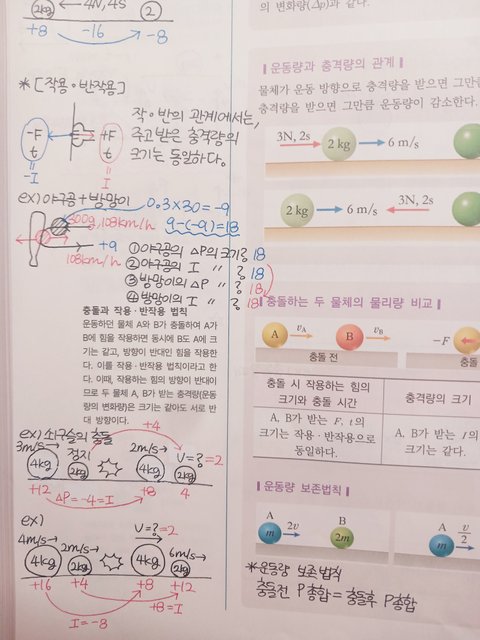 ← 4N, 4s
2kg
2
+8 -16 -8
* [작용·반작용]
작·반의 관계에서는,
주고 받은 충격량의
크기는 동일하다.
-F +F
t t
= =
-I I
ex) 야구공 + 방망이
0.3×30=-9
300g, 108km/h
9-(-9)=18
+9
108km/h
① 야구공의 ΔP의 크기? 18
② 야구공의 I 〃 ? 18
③ 방망이의 ΔP 〃 ? 18
④ 방망이의 I 〃 ? 18
충돌과 작용·반작용 법칙
운동하던 물체 A와 B가 충돌하여 A가
B에 힘을 작용하면 동시에 B도 A에 크
기는 같고, 방향이 반대인 힘을 작용한
다. 이를 작용·반작용 법칙이라고 한
다. 이때, 작용하는 힘의 방향이 반대이
므로 두 물체 A, B가 받는 충격량(운동
량의 변화량)은 크기는 같아도 서로 반
대 방향이다.
ex) 쇠구슬의 충돌
+4
3m/s→ 정지 2m/s→ v=?=2
4kg 2kg 4kg 2kg
+12 ΔP=-4=I +8 4
ex)
v=?=2
4m/s→ 2m/s→ 6m/s→
4kg 2kg 4kg 2kg
+16 +4 +8 +12
+8=I
I=-8
의 변화량(Δp)과 같다.
운동량과 충격량의 관계
물체가 운동 방향으로 충격량을 받으면 그만큼
충격량을 받으면 그만큼 운동량이 감소한다.
3N, 2s 2 kg 6 m/s
2 kg 6 m/s 3N, 2s
충돌하는 두 물체의 물리량 비교
A vA B vB -F
충돌 전 충돌
충돌 시 작용하는 힘의
크기와 충돌 시간
충격량의 크기
A, B가 받는 F, t의
크기는 작용·반작용으로
동일하다.
A, B가 받는 I의
크기는 같다.
운동량 보존법칙
A 2v B A v/2
m 2m m
*운동량 보존법칙
충돌전 P총합 = 충돌후 P총합